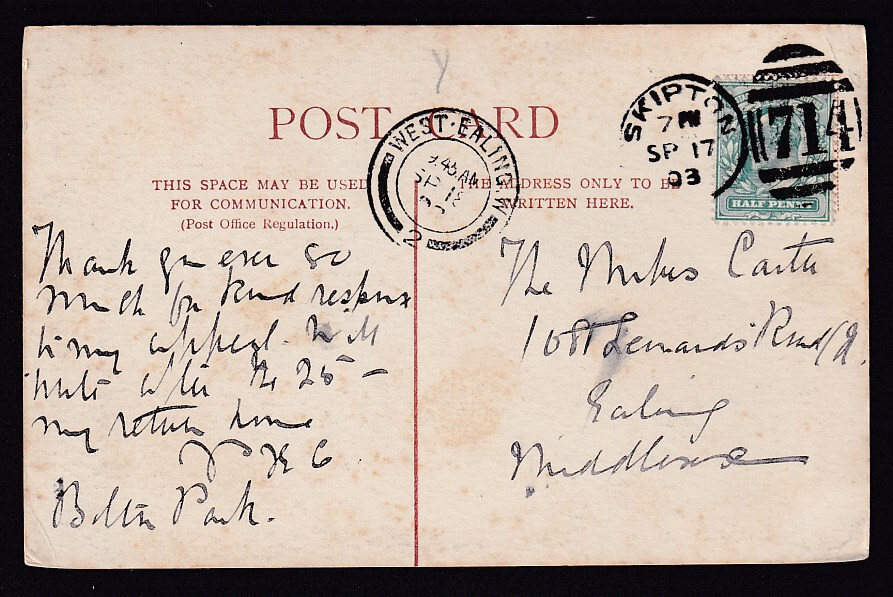 Y
POST CARD
THIS SPACE MAY BE USED
FOR COMMUNICATION.
(Post Office Regulation.)
THE ADDRESS ONLY TO BE
WRITTEN HERE.
WEST·EALING·W
9.45 AM
SP 18
2
SKIPTON
7 PM
SP 17
03
714
HALF PENNY
Thank you ever so
much for kind response
to my appeal. Will
write after the 25
my return home
Bolton Park.
The Misses Carter
10 St Leonards Road
Ealing
Middlesex